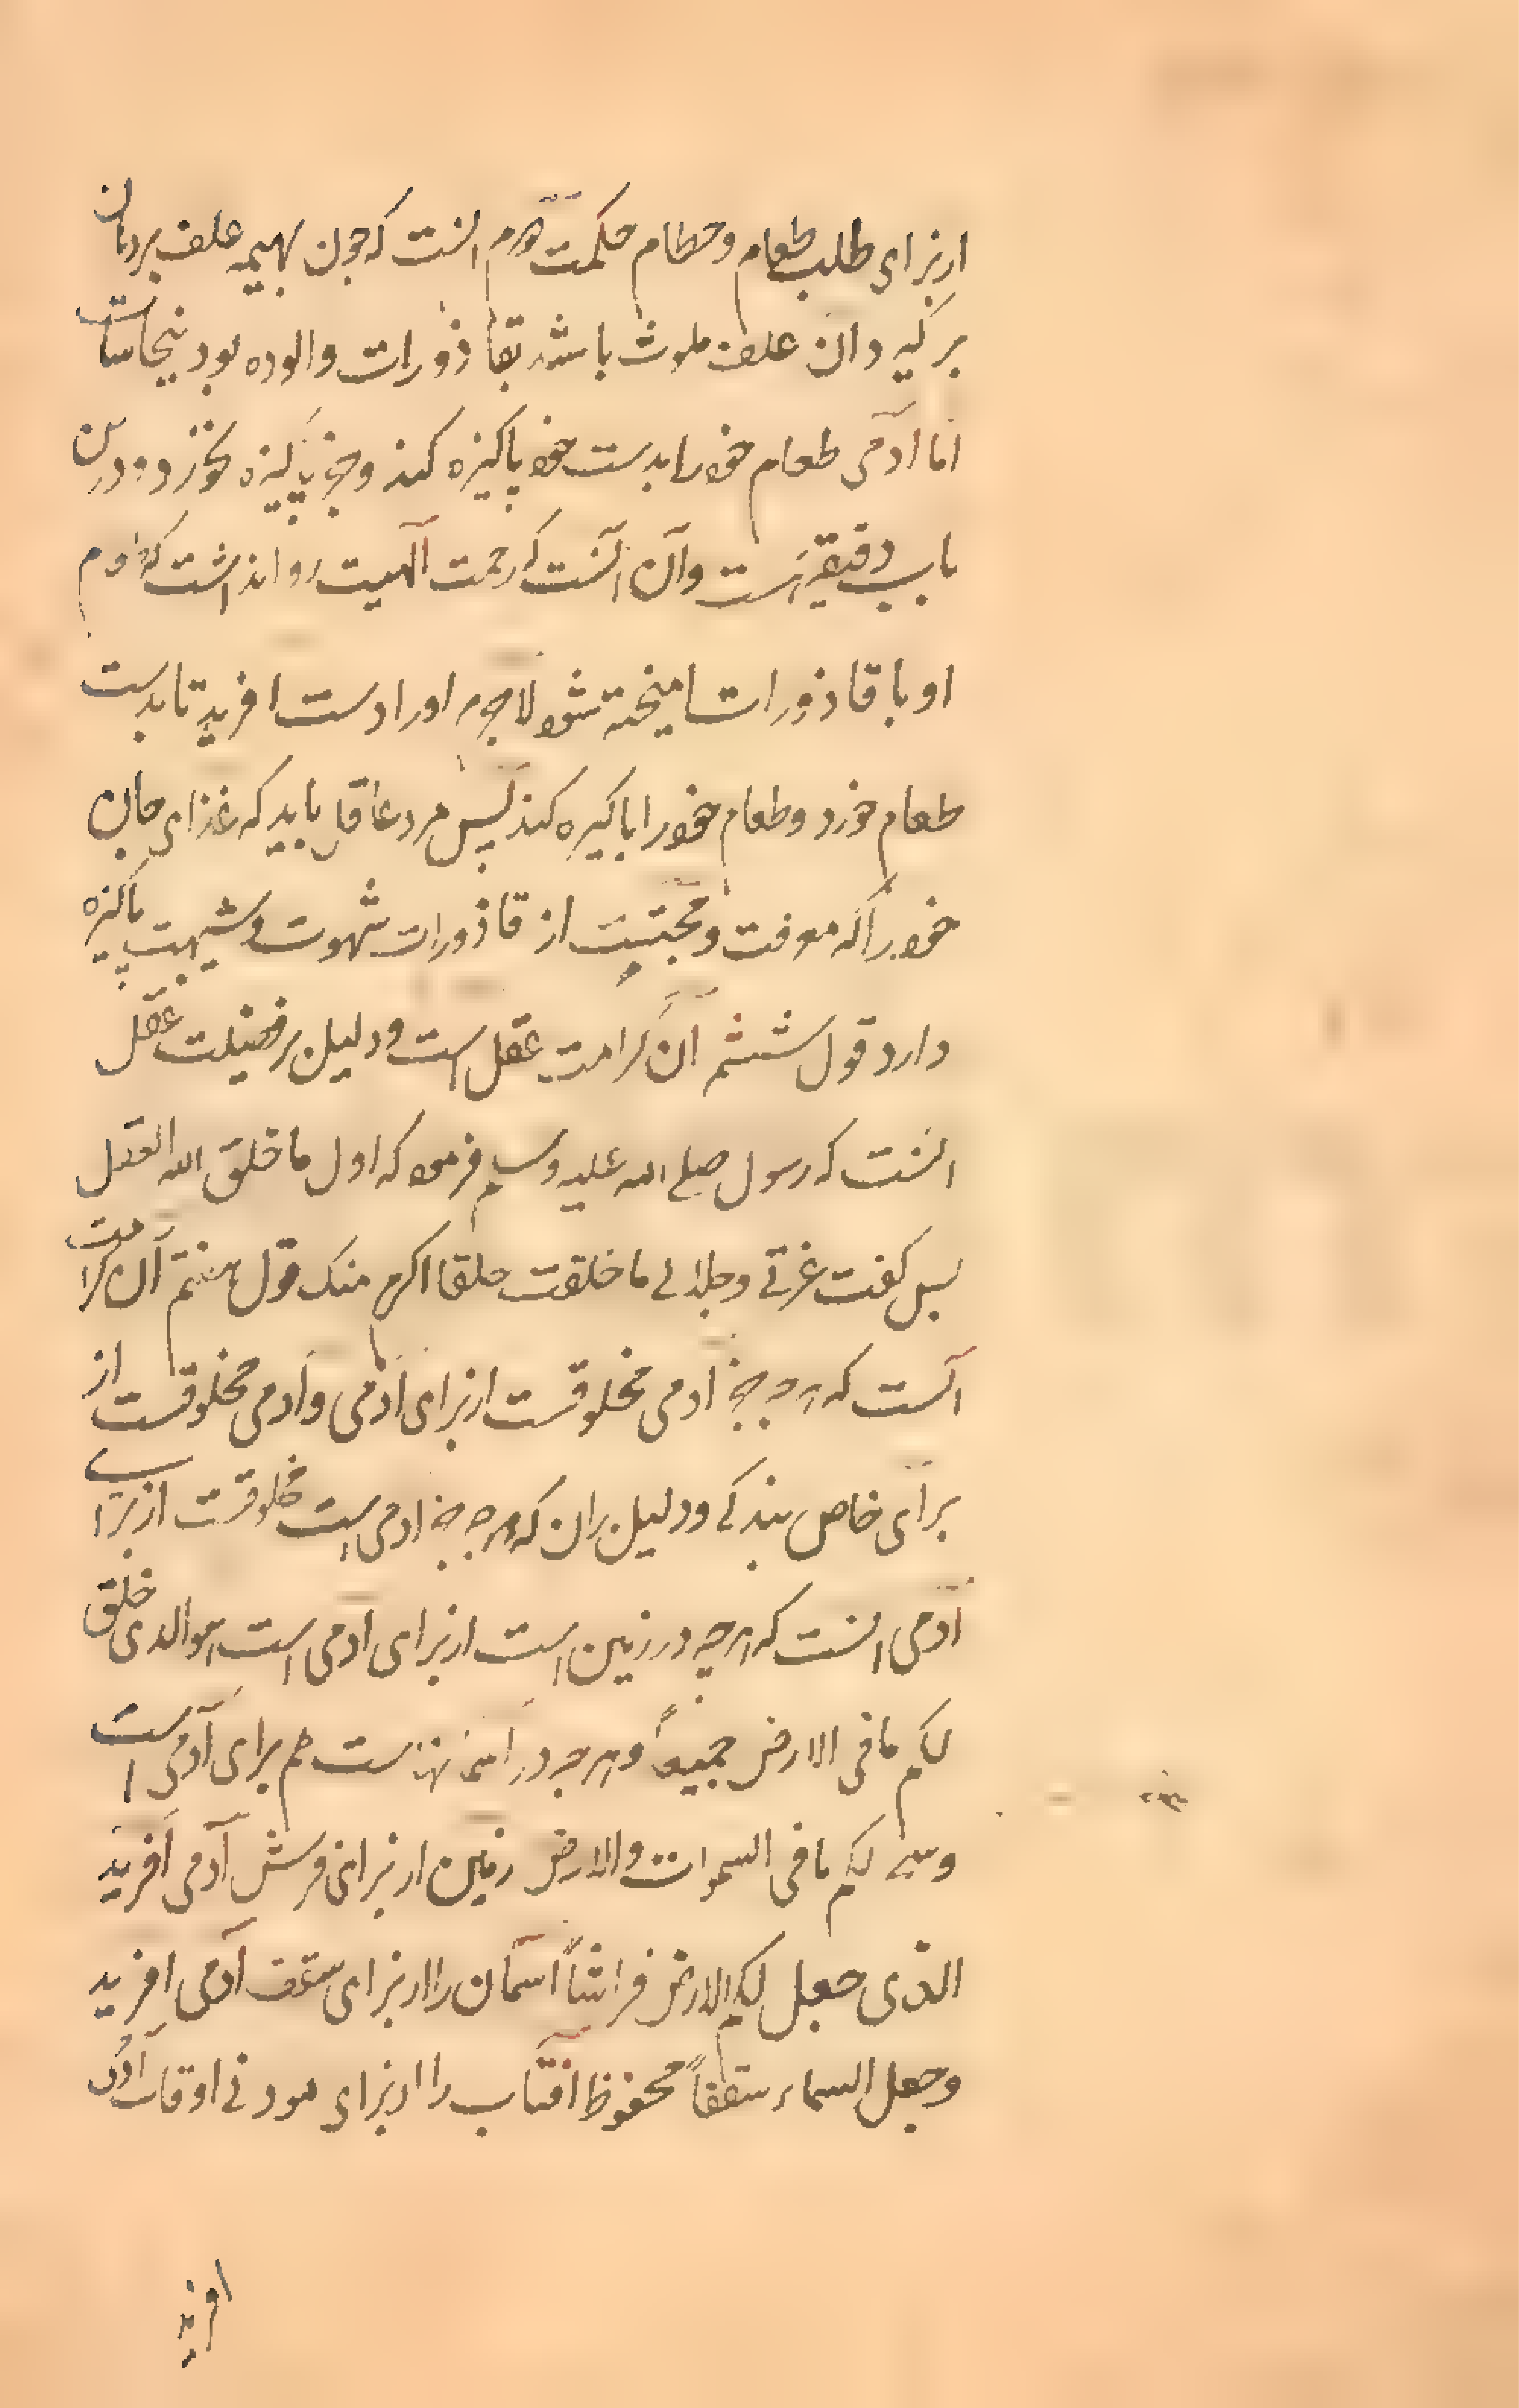 ازبرای طلب طعام و حطام حکمت دوم انست که چون بهیمه علف بردهان
برکیرد ان علف ملوث باشد بقاذورات والوده بود بنجاسات
اما آدمی طعام خودرا بدست خود پاکیزه کند وجز پاکیزه نخورد ودرین
باب دقیقه است وآن انست که رحمت آلهیت روا نداشت که طعام
او با قاذورات امیخته شود لاجرم اورا دست افرید تا بدست
طعام خورد وطعام خودرا پاکیزه کند پس مرد عاقل باید که غذای جان
خودرا که معرفت و محبتست از قاذورات شهوت و شبهت پاکیزه
دارد قول ششم آن کرامت عقل است ودلیل بر فضیلت عقل
انست که رسول صلی الله علیه وسلم فرمود که اول ما خلق الله العقل
پس کفت عزتی وجلالی ما خلقت خلقا اکرم منک قول هفتم آن کرامت
آنست که هرچه جز ادمی مخلوقست ازبرای آدمی وآدمی مخلوقست از
برای خاص بندکی ودلیل بران که هرچه جز ادمی است مخلوقست ازبرای
آدمی انست که هرچه در زمین است ازبرای ادمی است هوالذی خلق
لکم ما فی الارض جمیعاً وهرچه در اسمانهاست هم برای آدمی است
وسخر لکم ما فی السموات والارض زمین ازبرای فرش آدمی آفرید
الذی جعل لکم الارض فراشاً آسمان را ازبرای سقف آدمی افرید
وجعل السماء سقفاً محفوظ آفتاب را ازبرای اوقات آدمی
افرید